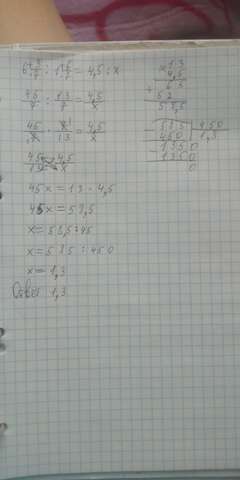 6 3/7 : 1 6/7 = 4,5 : x
45/7 : 13/7 = 4,5/x
45/7 · 7/13 = 4,5/x
45/13 = 4,5/x
45x = 13 · 4,5
45x = 58,5
x = 58,5 : 45
x = 585 : 450
x = 1,3
Ответ 1,3
×1,3
4,5
+ 65
52
58,5
585 | 450
450 | 1,3
1350
1350
0